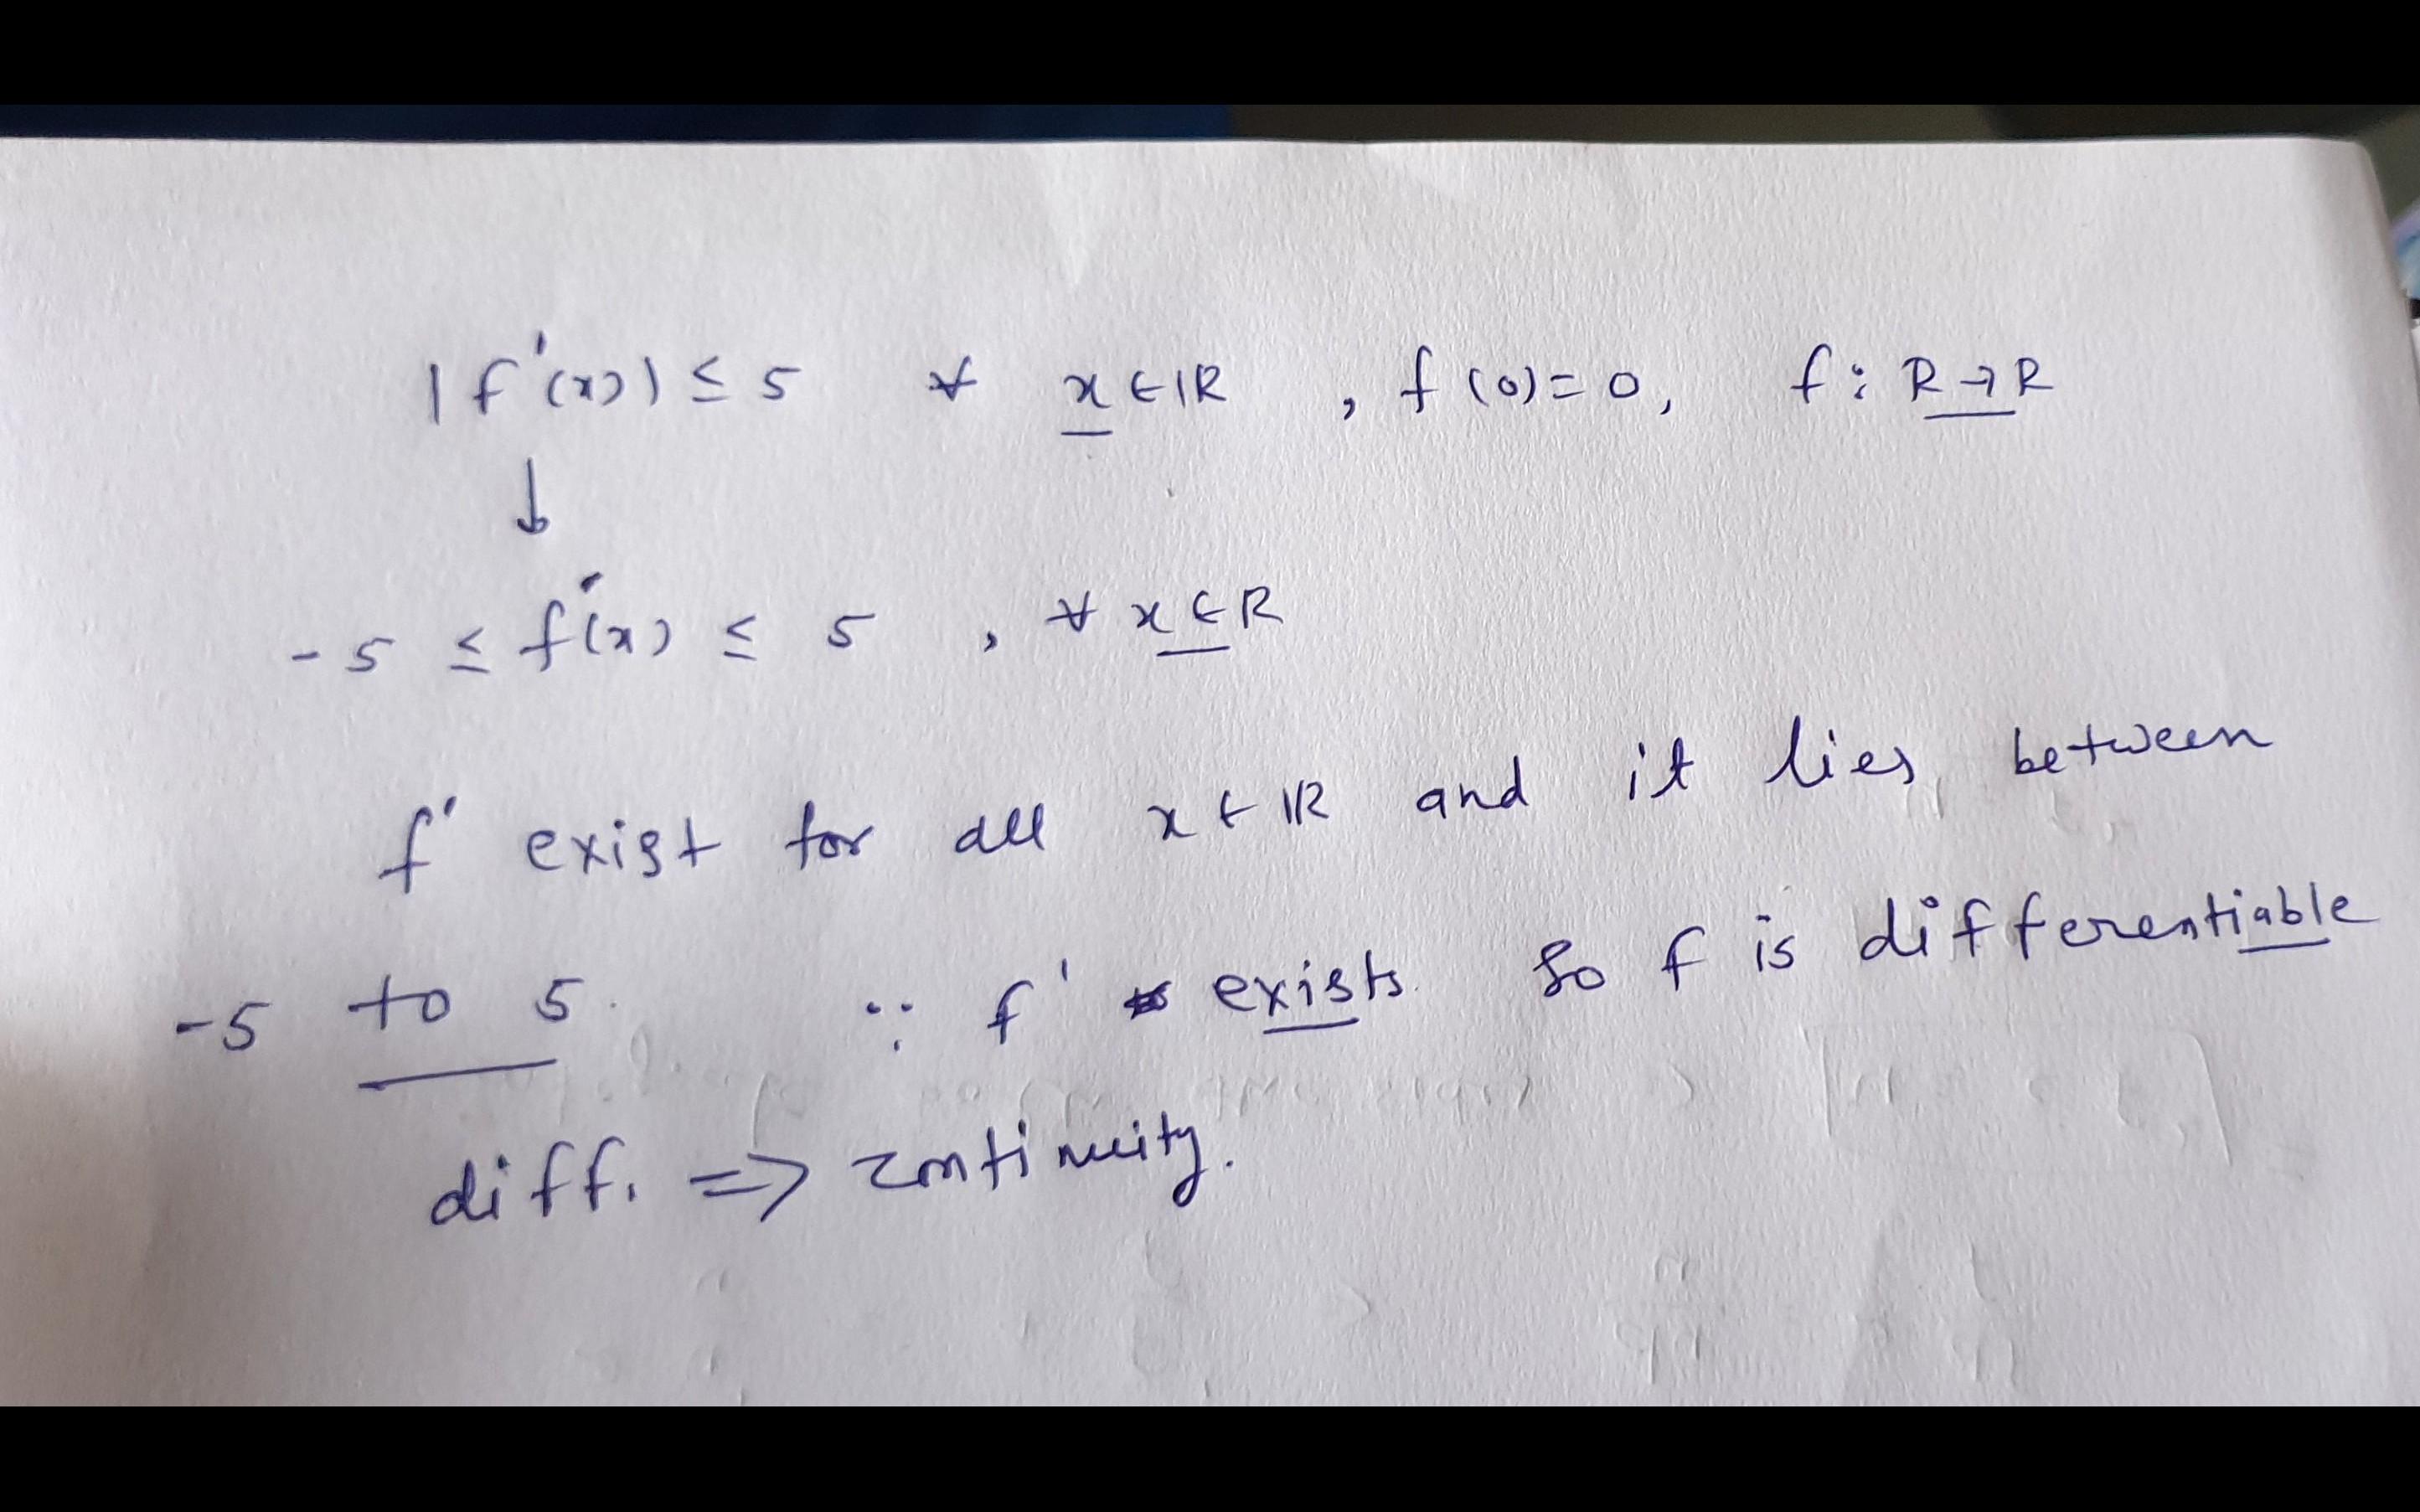 |f'(x)| ≤ 5 ∀ x ∈ IR , f(0)=0, f: R→R
↓
-5 ≤ f'(x) ≤ 5 , ∀ x ∈ R
f' exist for all x ∈ IR and it lies between
-5 to 5. ∵ f' exists. So f is differentiable
diff. => continuity.